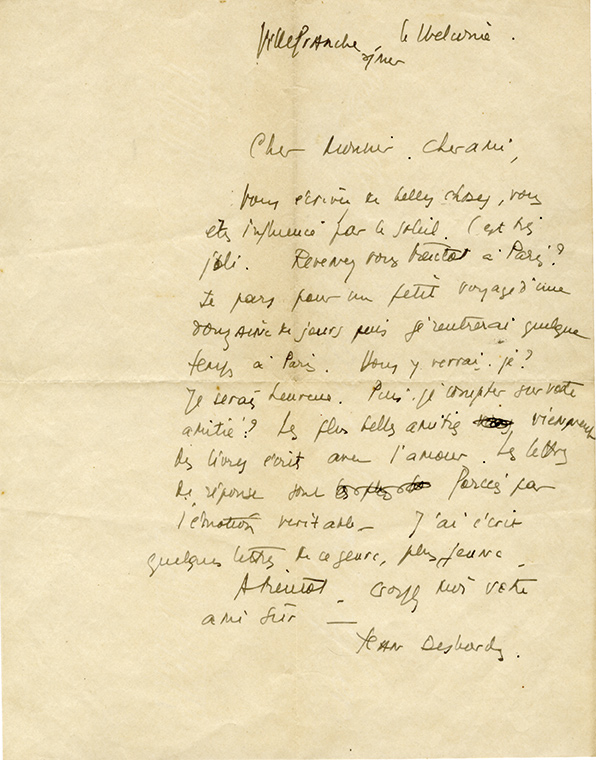 Villefranche s/mer le Welcome.
Cher Monsieur. Cher ami,
Vous écrivez de belles choses, vous
êtes influencé par le soleil. C'est très
joli. Revenez vous bientot à Paris?
Je pars pour un petit voyage d'une
douzaine de jours puis je rentrerai quelque
temps à Paris. Vous y verrai-je?
Je serais heureux. Puis-je compter sur votre
amitié? Les plus belles amitiés viennent
des livres écrits avec l'amour. Les lettres
de réponse sont forcées par
l'émotion veritable_ J'ai écrit
quelques lettres de ce genre, plus jeune_
A bientot_ croyez moi votre
ami sûr_
Jean Desbordes.